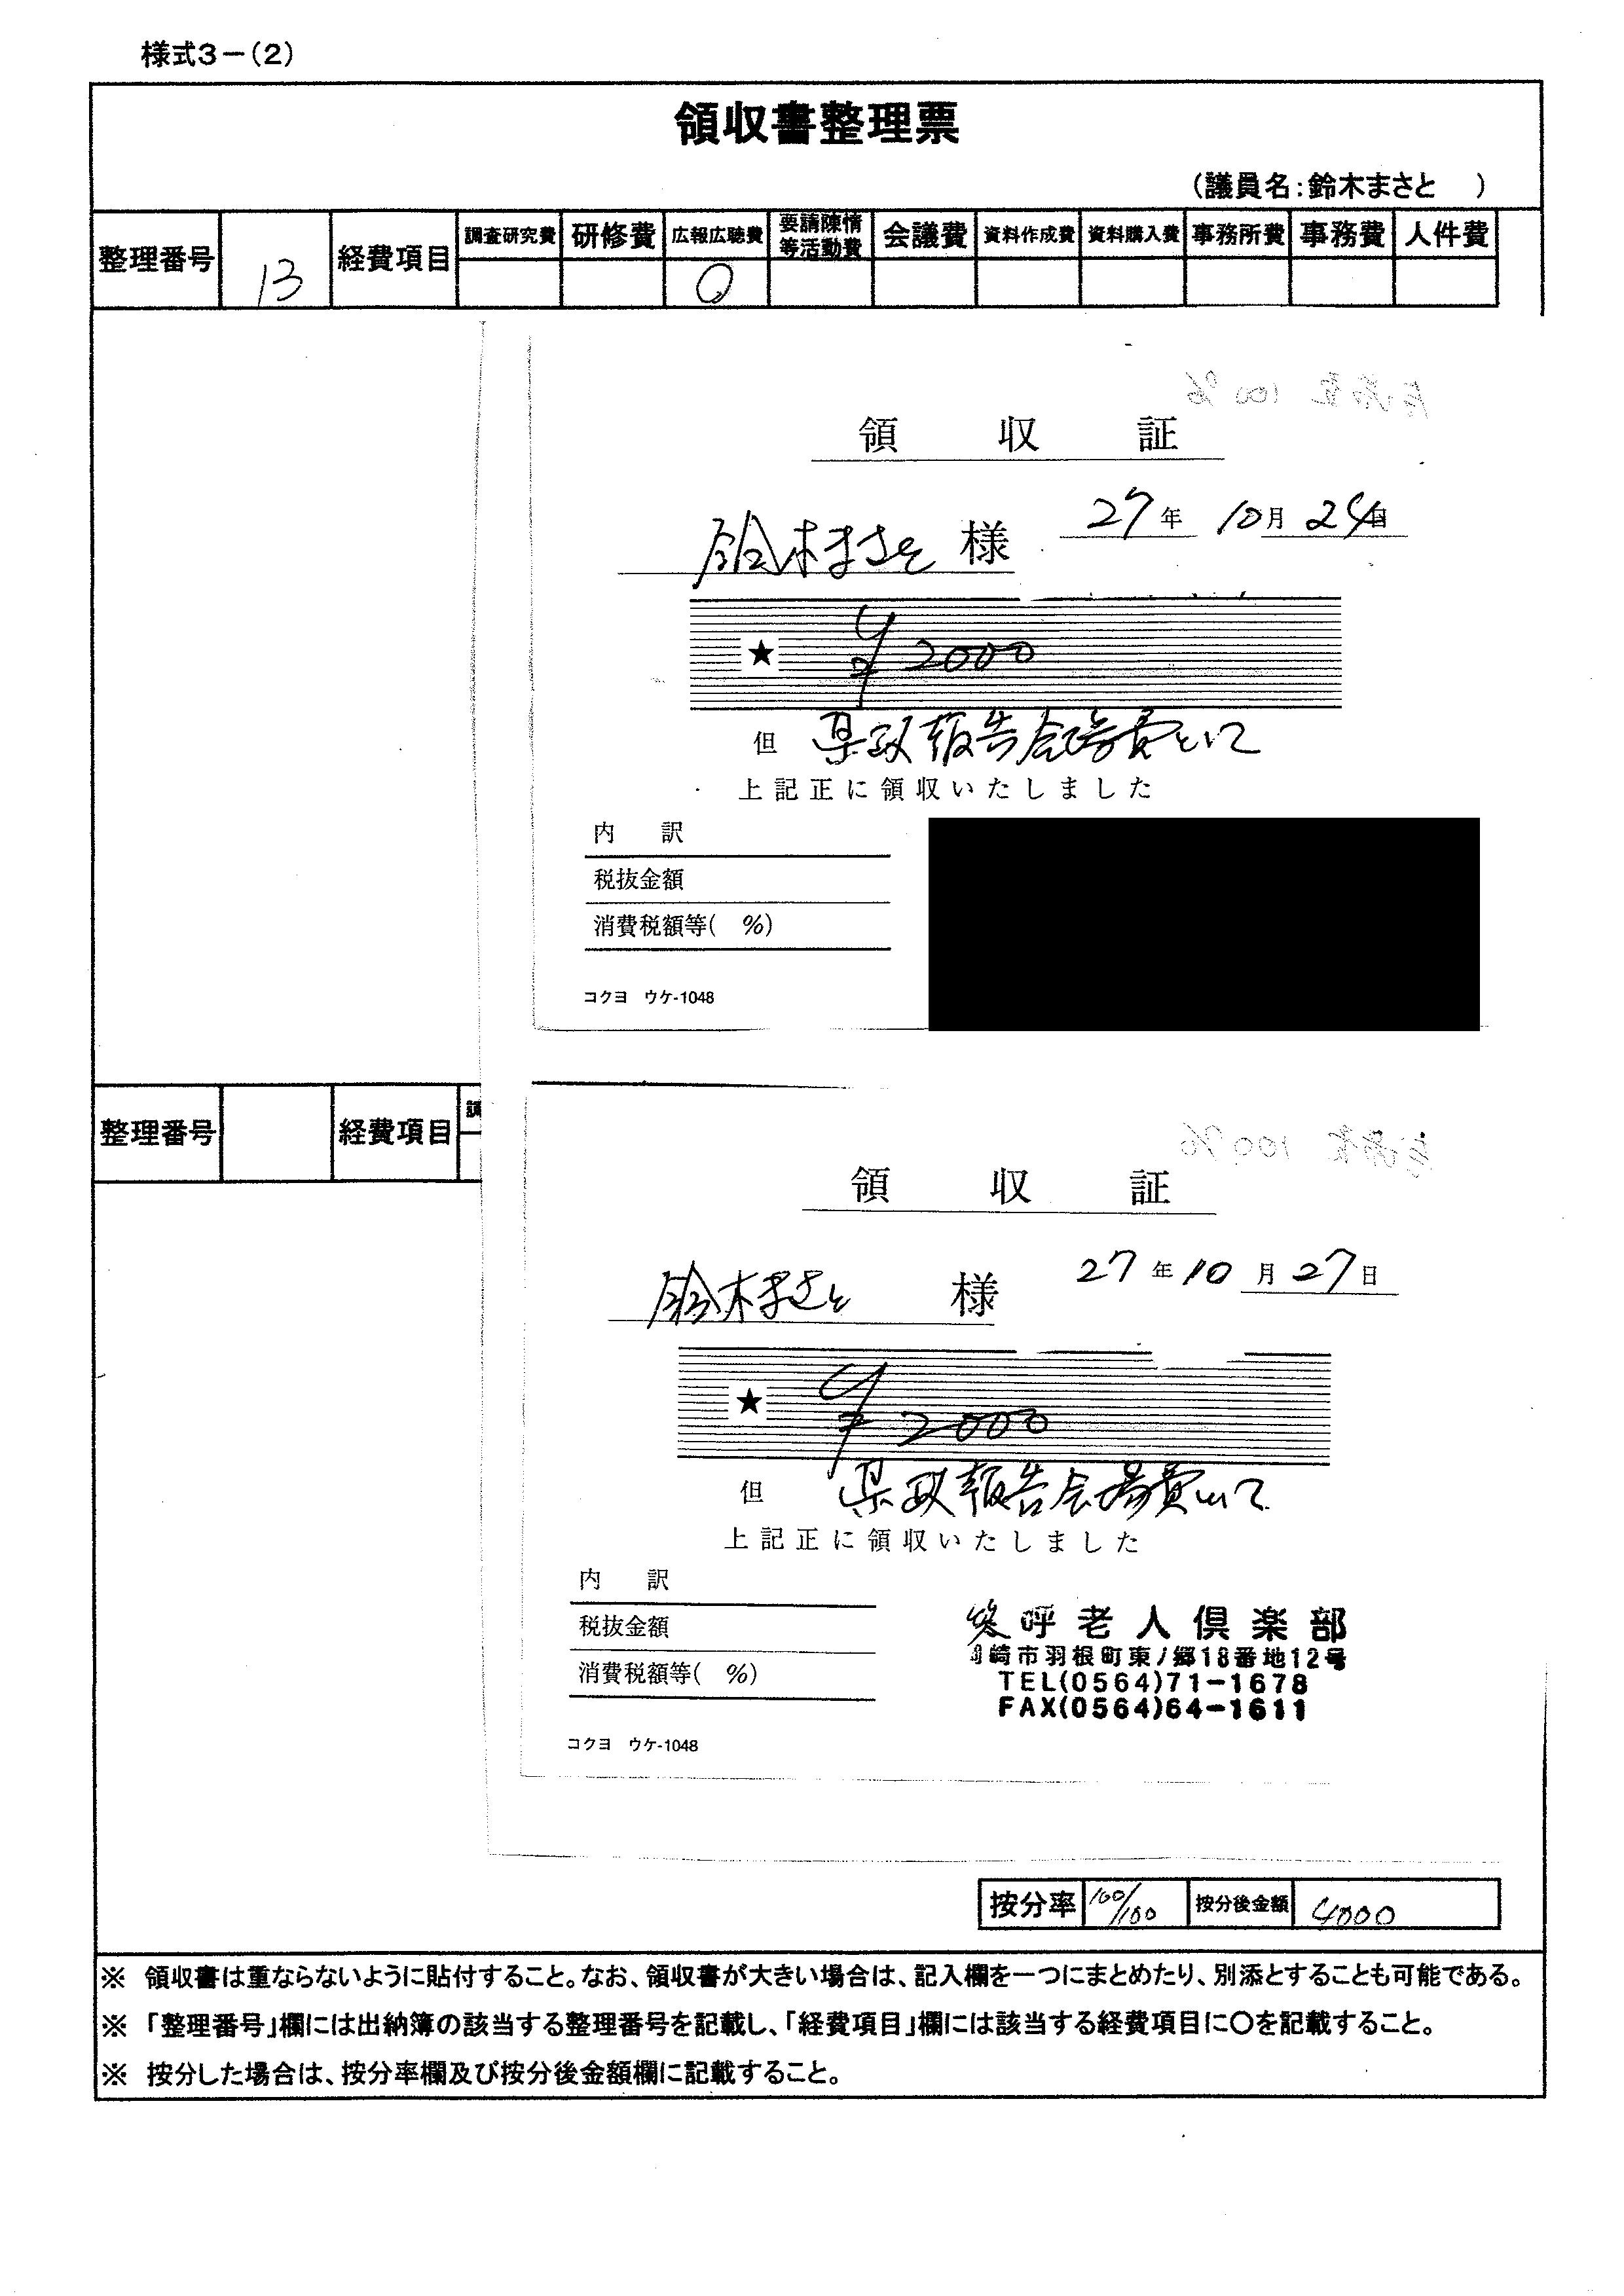 様式3-(2)
領収書整理票
(議員名:鈴木まさと )
整理番号 13 経費項目 調査研究費 研修費 広報広聴費 要請陳情等活動費 会議費 資料作成費 資料購入費 事務所費 事務費 人件費
○
100%
領 収 証
鈴木まさと 様 27年 10月 24日
★ ¥2000
但 県政報告会場費として
上記正に領収いたしました
内 訳
税抜金額
消費税額等( %)
コクヨ ウケ-1048
整理番号 経費項目
100%
領 収 証
鈴木まさと 様 27年 10月 27日
★ ¥2000
但 県政報告会場費として
上記正に領収いたしました
内 訳
税抜金額
消費税額等( %)
呼老人倶楽部
崎市羽根町東ノ郷18番地12号
TEL(0564)71-1678
FAX(0564)64-1611
コクヨ ウケ-1048
按分率 100/100 按分後金額 4000
※ 領収書は重ならないように貼付すること。なお、領収書が大きい場合は、記入欄を一つにまとめたり、別添とすることも可能である。
※ 「整理番号」欄には出納簿の該当する整理番号を記載し、「経費項目」欄には該当する経費項目に○を記載すること。
※ 按分した場合は、按分率欄及び按分後金額欄に記載すること。